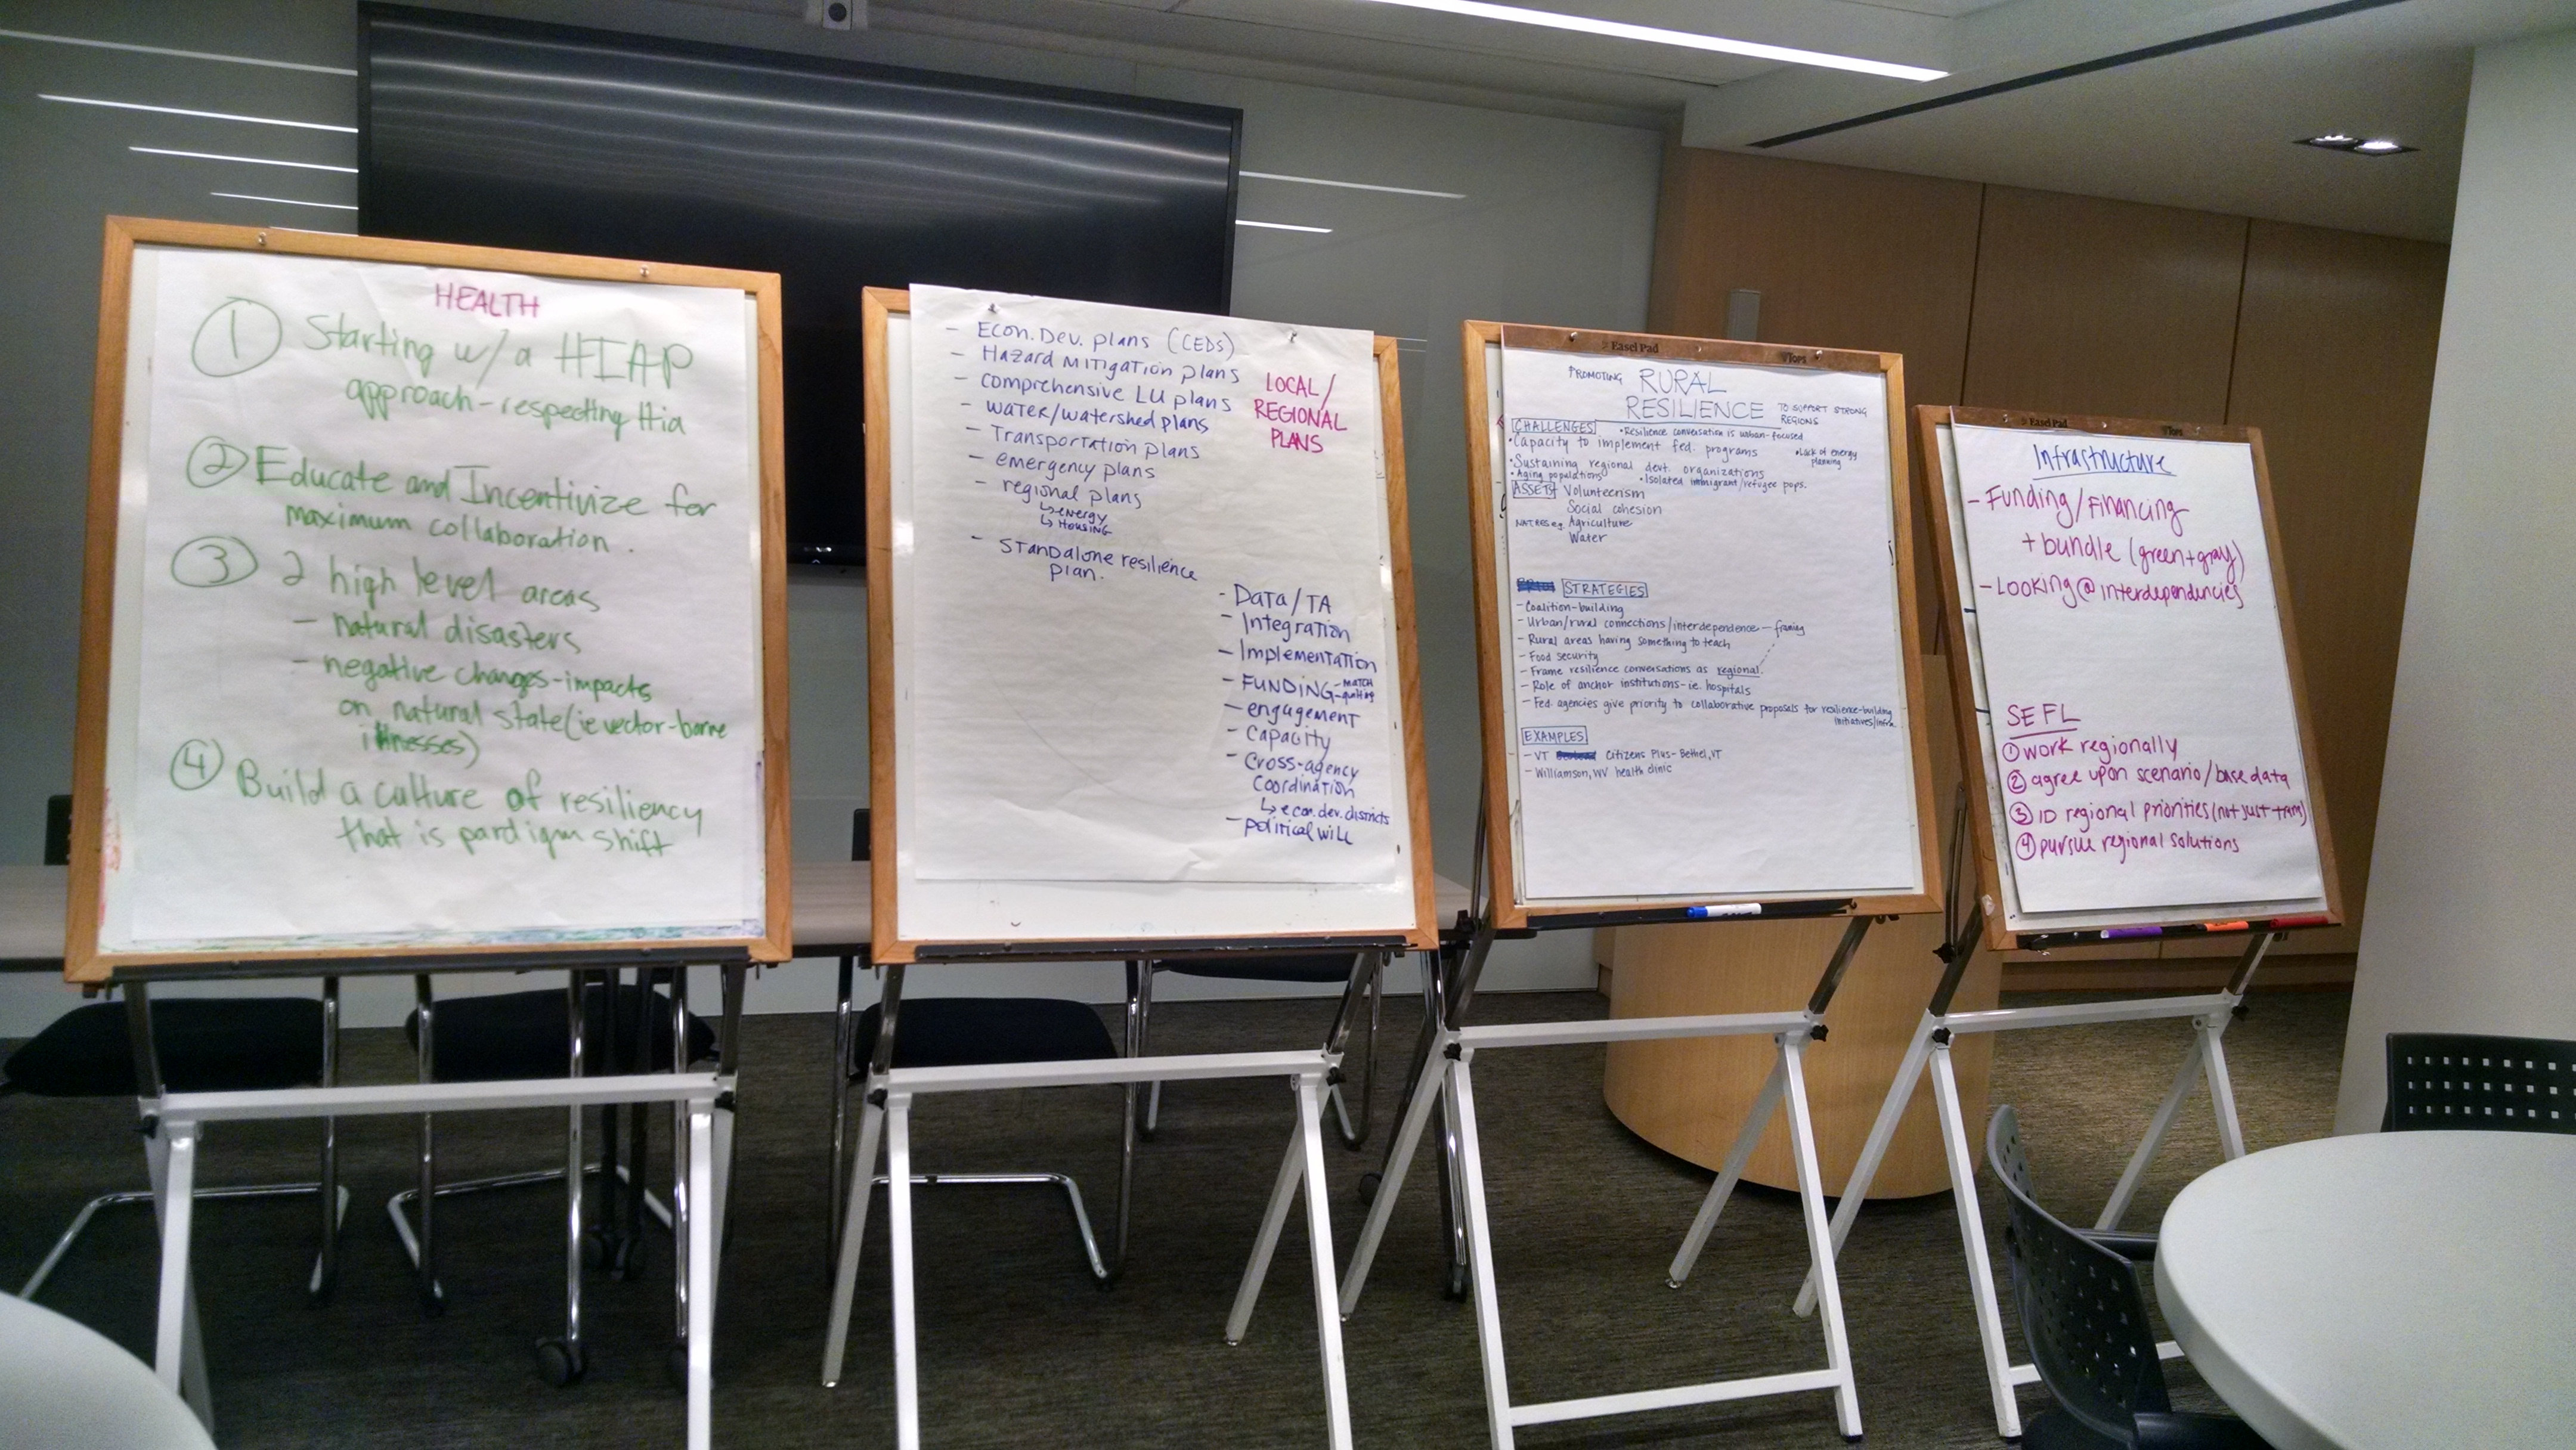 HEALTH
① Starting w/ a HIAP
approach - respecting Hia
② Educate and Incentivize for
maximum collaboration.
③ 2 high level areas
- natural disasters
- negative changes-impacts
on natural state (ie vector-borne
illnesses)
④ Build a culture of resiliency
that is pardigm shift
- Econ. Dev. plans (CEDS)
- Hazard Mitigation plans
- comprehensive LU plans
- water/watershed plans
- Transportation plans
- emergency plans
- regional plans
↳ energy
↳ Housing
- Standalone resilience
plan.
LOCAL/
REGIONAL
PLANS
- Data/TA
- Integration
- Implementation
- FUNDING - match
- engagement
- capacity
- cross-agency
coordination
↳ econ. dev. districts
- political will
Easel Pad
Tops
PROMOTING RURAL
RESILIENCE TO SUPPORT STRONG
REGIONS
CHALLENGES • Resilience conversation is urban-focused
• Capacity to implement fed. programs • Lack of energy
planning
• Sustaining regional devt. organizations
• Aging populations • Isolated immigrant/refugee pops.
ASSETS Volunteerism
Social cohesion
NAT. RES eg. Agriculture
Water
STRATEGIES
- Coalition-building
- Urban/rural connections/interdependence - framing
- Rural areas having something to teach
- Food security
- Frame resilience conversations as regional.
- Role of anchor institutions - ie. hospitals
- Fed. agencies give priority to collaborative proposals for resilience-building
initiatives/infra.
EXAMPLES
- VT Citizens Plus - Bethel, VT
- Williamson, WV health clinic
Easel Pad
Tops
Infrastructure
- Funding/Financing
+ bundle (green + gray)
- Looking @ interdependencies
SEFL
① work regionally
② agree upon scenario/base data
③ ID regional priorities (not just trans)
④ pursue regional solutions